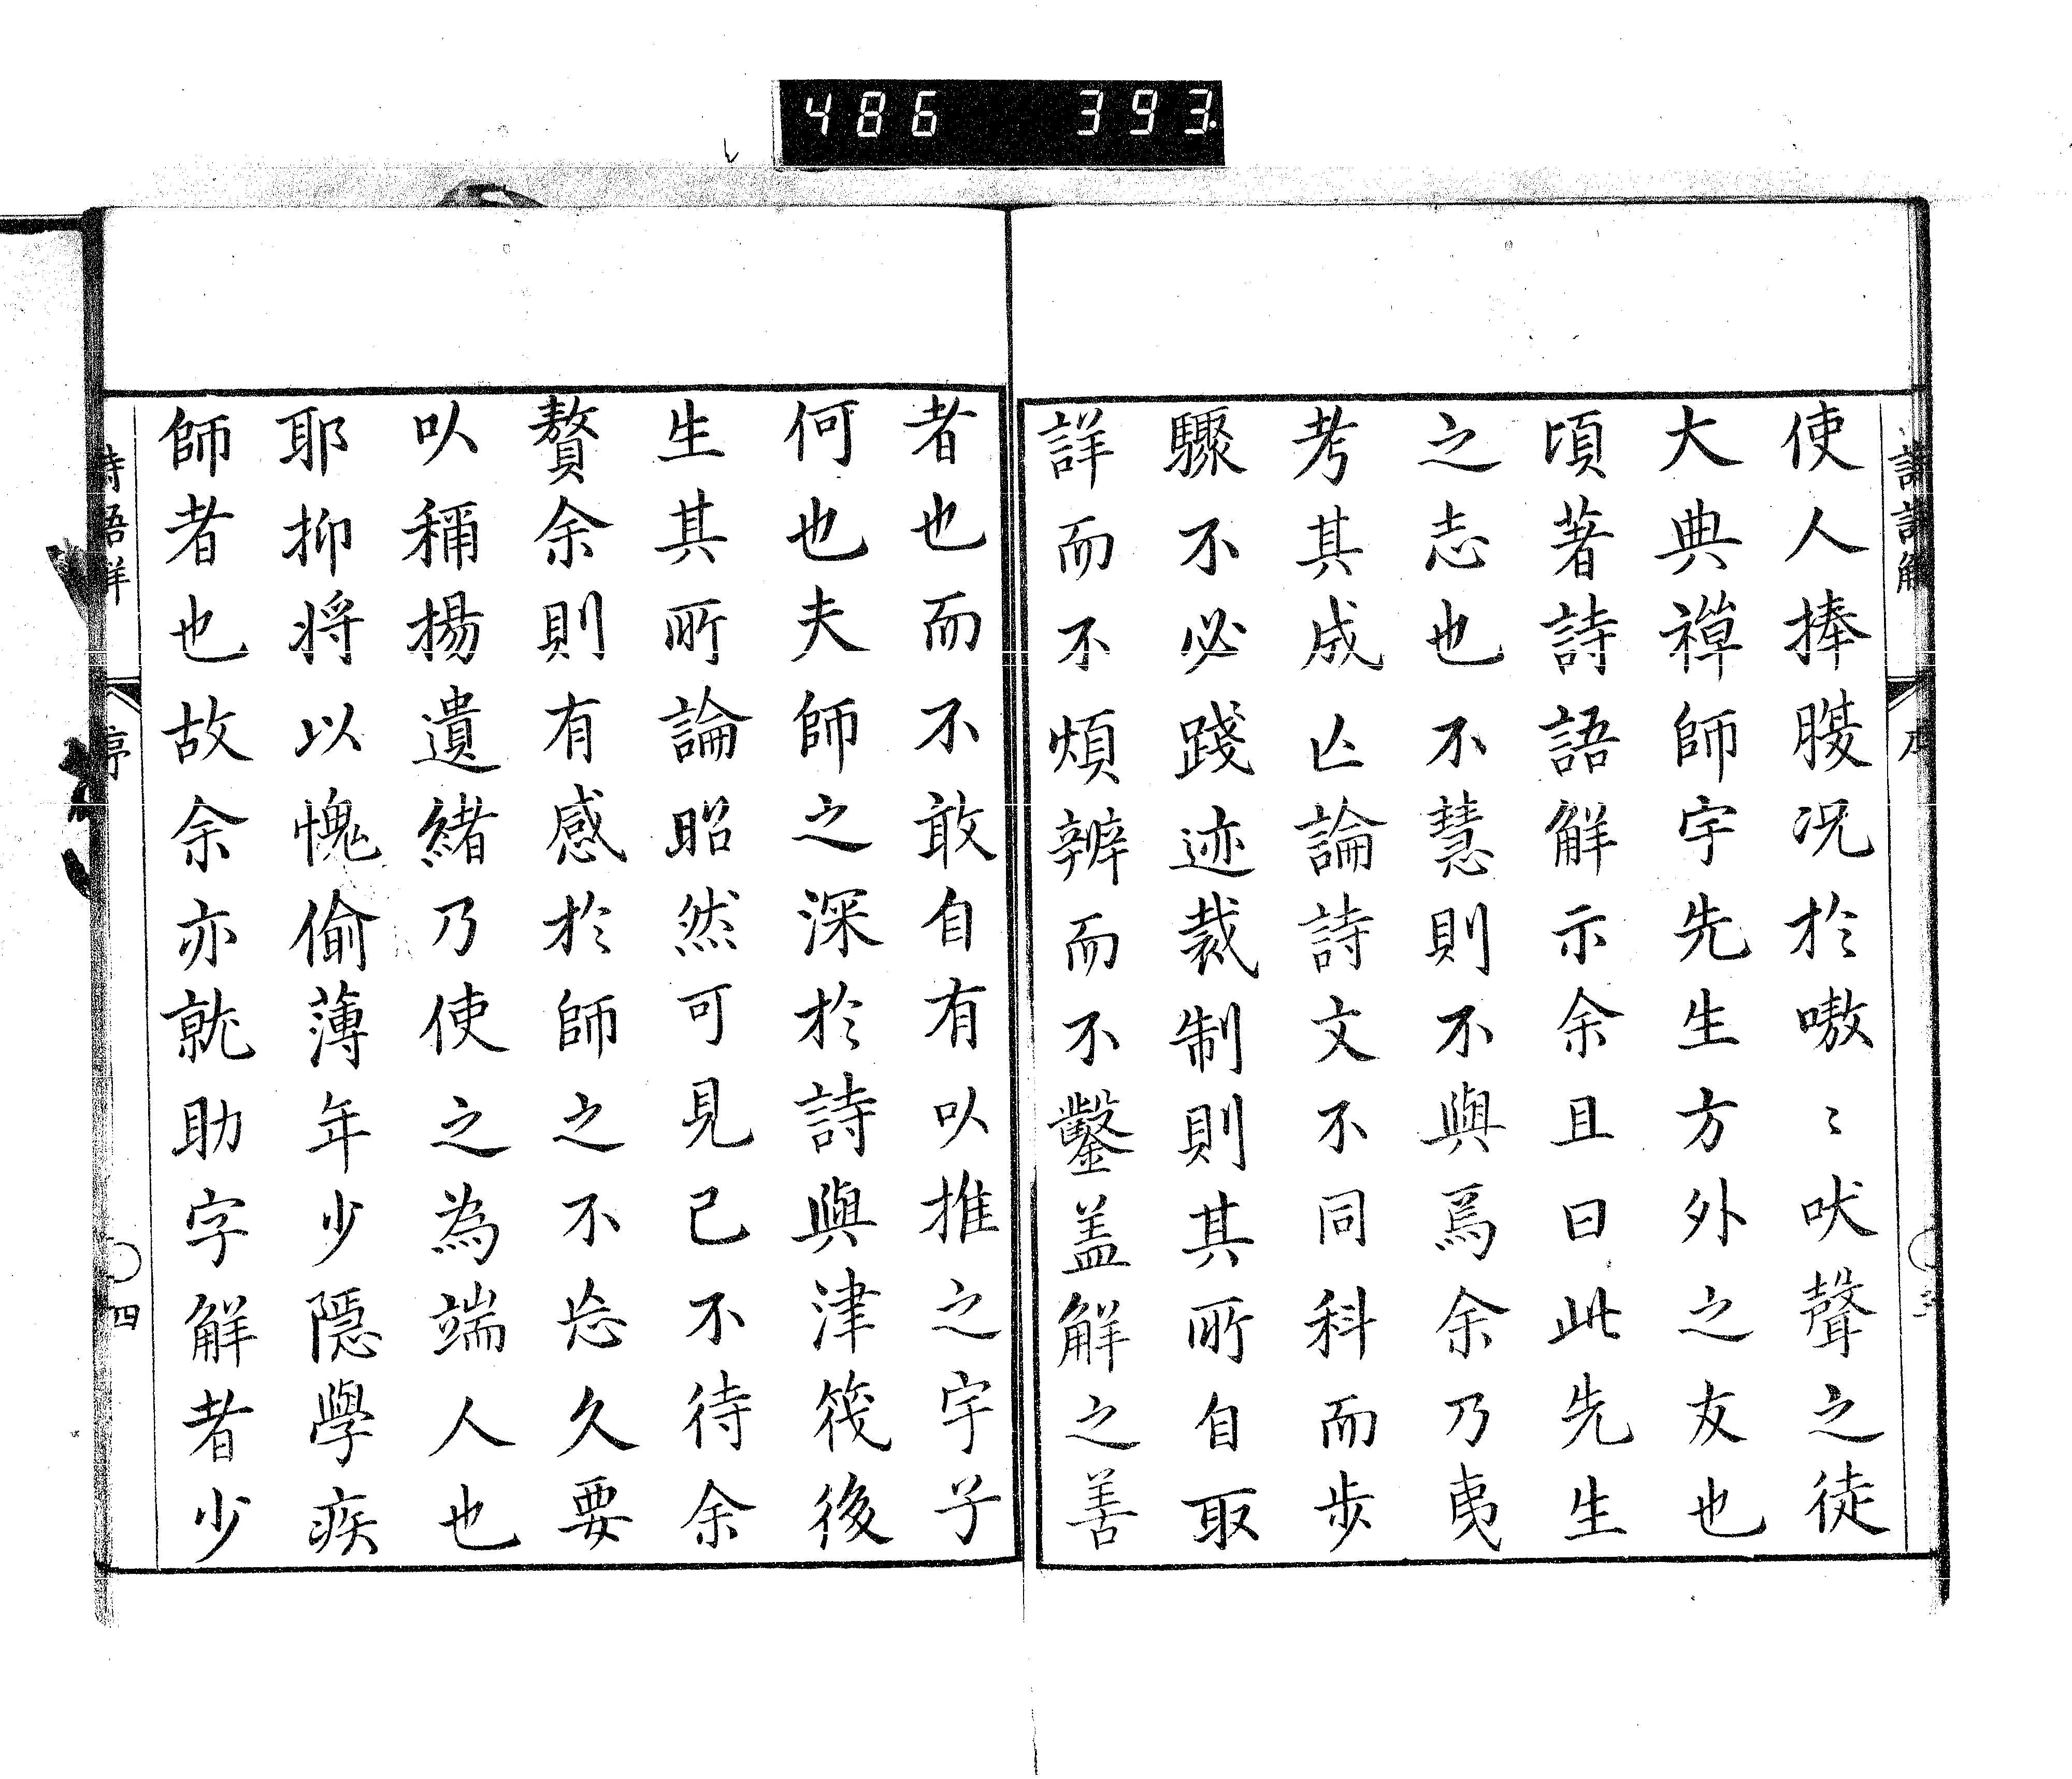 486 393
詩語解
使人捧腹况於嗷〻吠聲之徒
大典禪師宇先生方外之友也
頃著詩語解示余且曰此先生
之志也不慧則不與焉余乃夷
考其成亾論詩文不同科而步
驟不必踐迹裁制則其所自取
詳而不煩辨而不鑿盖解之善
者也而不敢自有以推之宇子
何也夫師之深於詩與津筏後
生其所論昭然可見已不待余
贅余則有感於師之不忘久要
以稱揚遺緒乃使之為端人也
耶抑将以愧偷薄年少隱學疾
師者也故余亦就助字解者少
詩語解 序 四